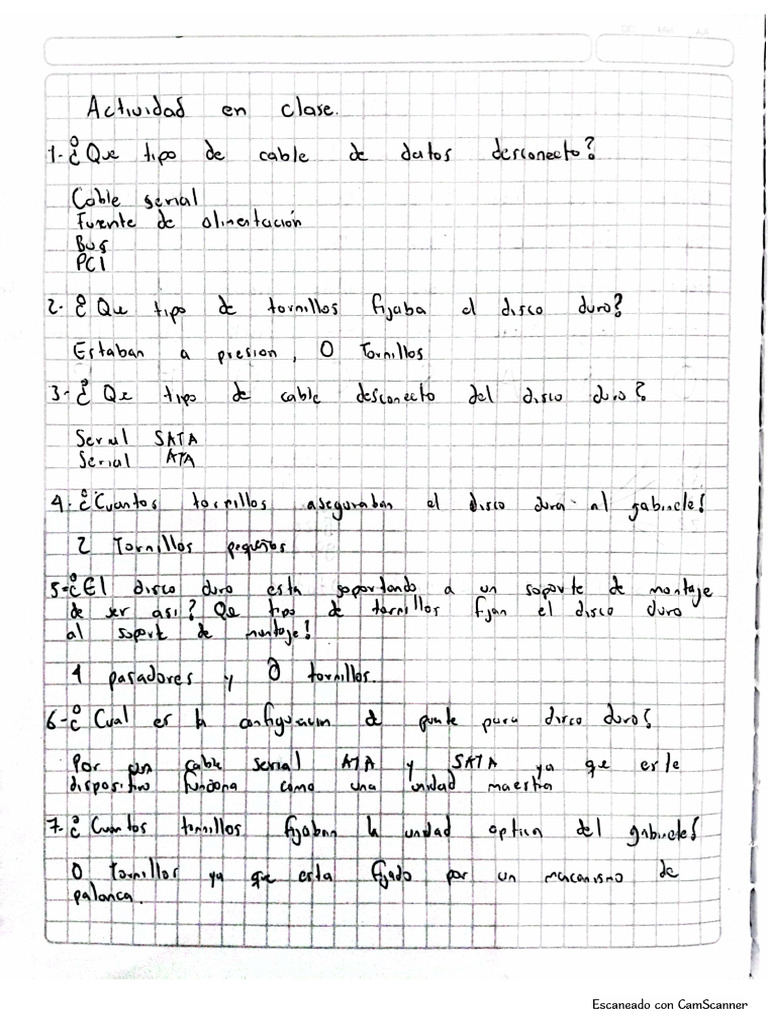 Actividad en clase.
1- ¿Que tipo de cable de datos desconecto?
Cable serial
Fuente de alimentación
Bus
PCI
2- ¿Que tipo de tornillos fijaba el disco duro?
Estaban a presion, 0 Tornillos
3- ¿Que tipo de cable desconecto del disco duro?
Serial SATA
Serial ATA
4- ¿Cuantos tornillos aseguraban el disco duro al gabinete?
2 Tornillos pequeños
5- ¿El disco duro esta soportando a un soporte de montaje
de ser asi? Que tipo de tornillos fijan el disco duro
al soporte de montaje?
4 pasadores y 0 tornillos.
6- ¿Cual es la configuracion de puente para disco duro?
Por un cable serial ATA y SATA ya que este
dispositivo funciona como una unidad maestra
7- ¿Cuantos tornillos fijaban la unidad optica del gabinete?
0 Tornillos ya que esta fijado por un mecanismo de
palanca.
Escaneado con CamScanner